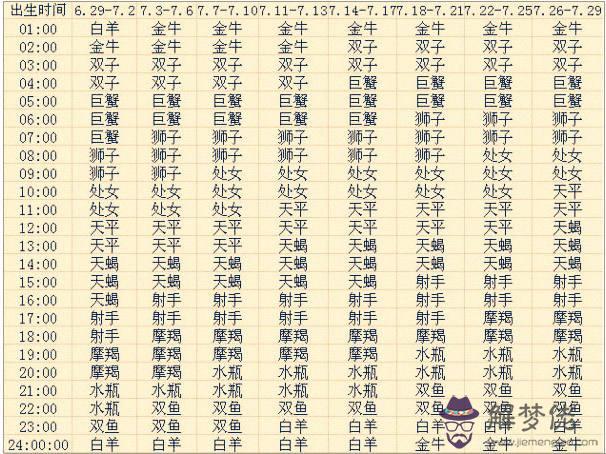 出生时间 6.29-7.2 7.3-7.6 7.7-7.10 7.11-7.13 7.14-7.17 7.18-7.21 7.22-7.25 7.26-7.29
01:00 白羊 金牛 金牛 金牛 金牛 金牛 金牛 金牛
02:00 金牛 金牛 金牛 金牛 双子 双子 双子 双子
03:00 双子 双子 双子 双子 双子 双子 双子 双子
04:00 双子 双子 双子 双子 巨蟹 巨蟹 巨蟹 巨蟹
05:00 巨蟹 巨蟹 巨蟹 巨蟹 巨蟹 巨蟹 巨蟹 巨蟹
06:00 巨蟹 巨蟹 巨蟹 巨蟹 巨蟹 狮子 狮子 狮子
07:00 巨蟹 狮子 狮子 狮子 狮子 狮子 狮子 狮子
08:00 狮子 狮子 狮子 狮子 狮子 狮子 处女 处女
09:00 狮子 狮子 处女 处女 处女 处女 处女 处女
10:00 处女 处女 处女 处女 处女 处女 处女 天平
11:00 处女 处女 处女 天平 天平 天平 天平 天平
12:00 天平 天平 天平 天平 天平 天平 天平 天蝎
13:00 天平 天平 天平 天平 天蝎 天蝎 天蝎 天蝎
14:00 天蝎 天蝎 天蝎 天蝎 天蝎 天蝎 天蝎 天蝎
15:00 天蝎 天蝎 天蝎 天蝎 天蝎 射手 射手 射手
16:00 天蝎 射手 射手 射手 射手 射手 射手 射手
17:00 射手 射手 射手 射手 射手 射手 摩羯 摩羯
18:00 射手 摩羯 摩羯 摩羯 摩羯 摩羯 摩羯 摩羯
19:00 摩羯 摩羯 摩羯 摩羯 摩羯 水瓶 水瓶 水瓶
20:00 摩羯 摩羯 水瓶 水瓶 水瓶 水瓶 水瓶 水瓶
21:00 水瓶 水瓶 水瓶 水瓶 水瓶 双鱼 双鱼 双鱼
22:00 水瓶 双鱼 双鱼 双鱼 双鱼 双鱼
23:00 双鱼 双鱼 双鱼 白羊 白羊 白羊
24:00:00 白羊 白羊 白羊 白羊 白羊 金牛 金牛 金牛
解梦佬
www.jiemeng